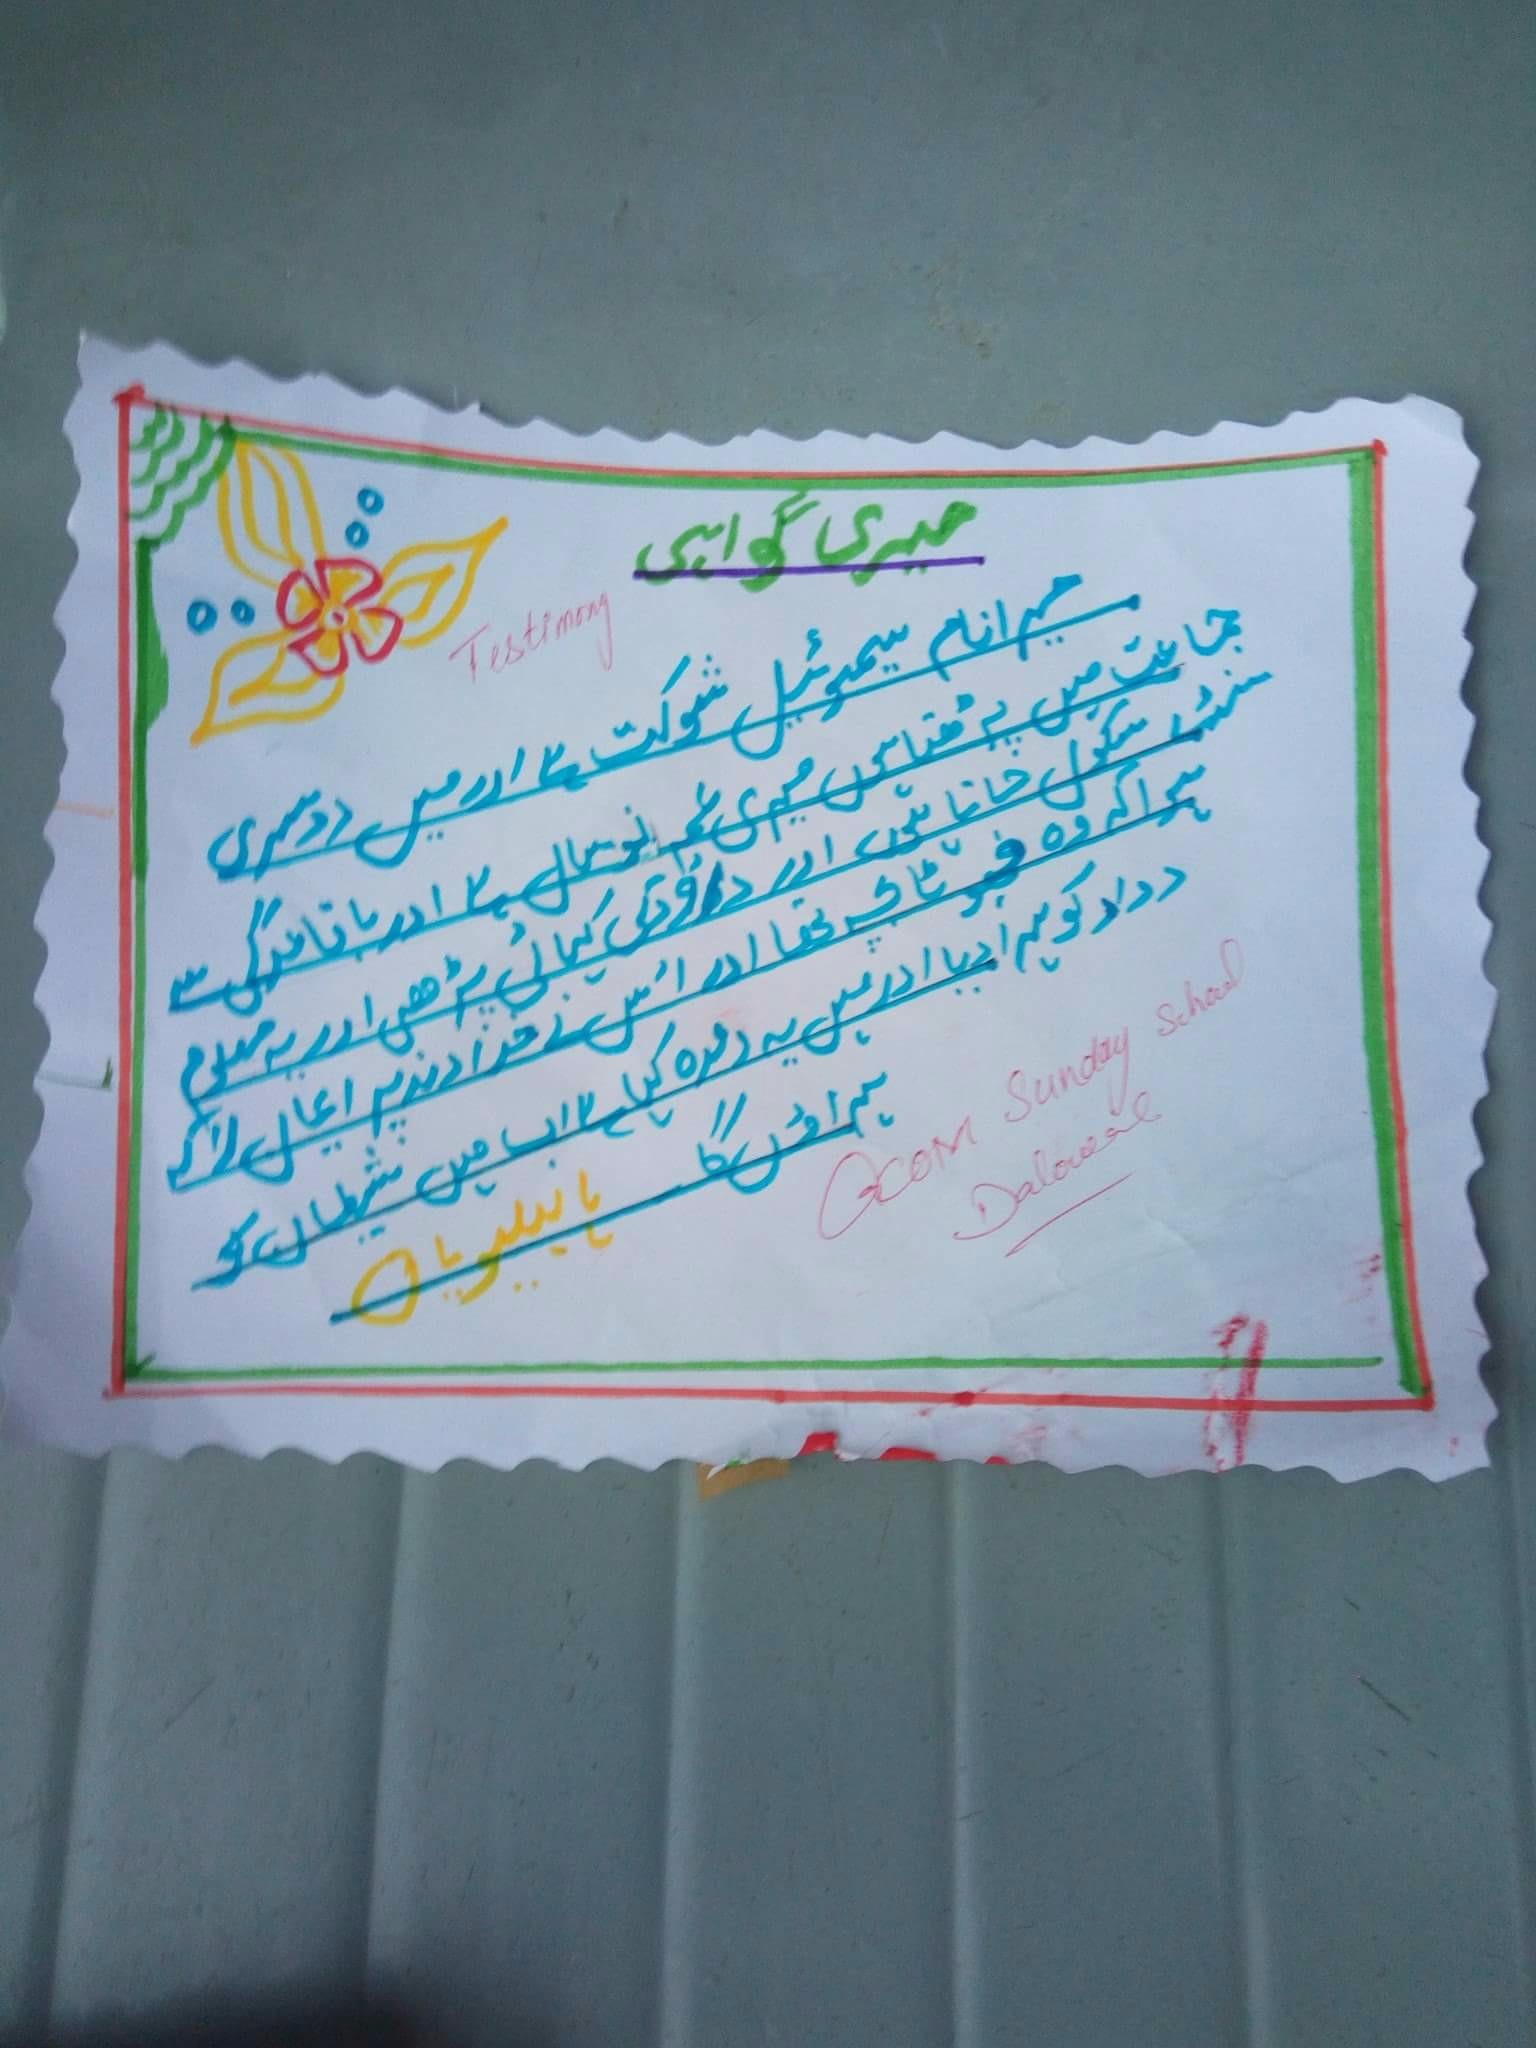 میری گواہی
Testimony
میرا نام سیموئیل شوکت ہے اور میں دوسری
جماعت میں پڑھتا ہوں میری عمر نو سال ہے اور باقاعدگی سے
سنڈے سکول جاتا ہوں اور داؤد کی کہانی پڑھی اور یہ معلوم
ہوا کہ وہ چھوٹا تھا اور اس نے خداوند پر ایمان رکھ کر
کو ہرا دیا اور میں یہ وعدہ کیا ہے اب میں شیطان کو
ہراؤں گا
ہالیلویاہ
Gcom Sunday School
Dalowal